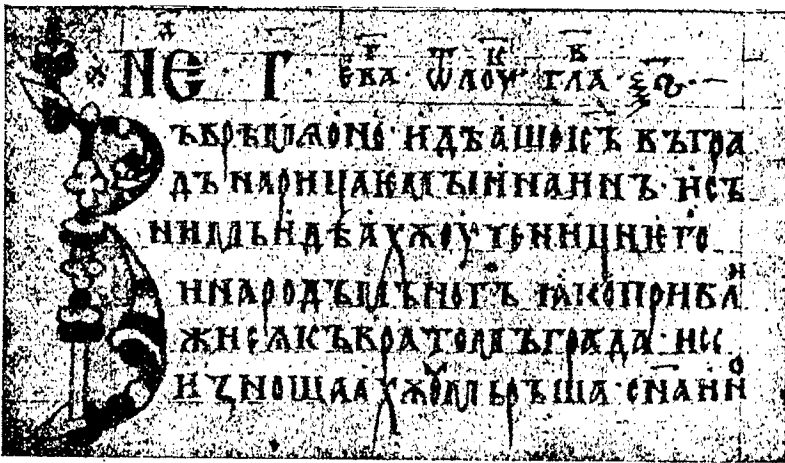 НЕ Г҃ · ЕВАг · ѾЛОУк · ГЛАв · Ѯ҃З ·
ВЪВРѢМѦОНО · ИДѢАШЕІСЪ ВЪГРА
ДЪ НАРИЦАѤМЪІИНАИНЪ · ИСЪ
НИМЬИДѢАХѪОУЧЕНИЦИѤГО
ИНАРОДЪМЪНОГЪ ꙖКОПРИБЛИ
ЖИСѦКЪВРАТОМЪГРАДА · ИСЕ
ИꙀНОЩААХѪѸМЬРЪША · СН҃АИНО